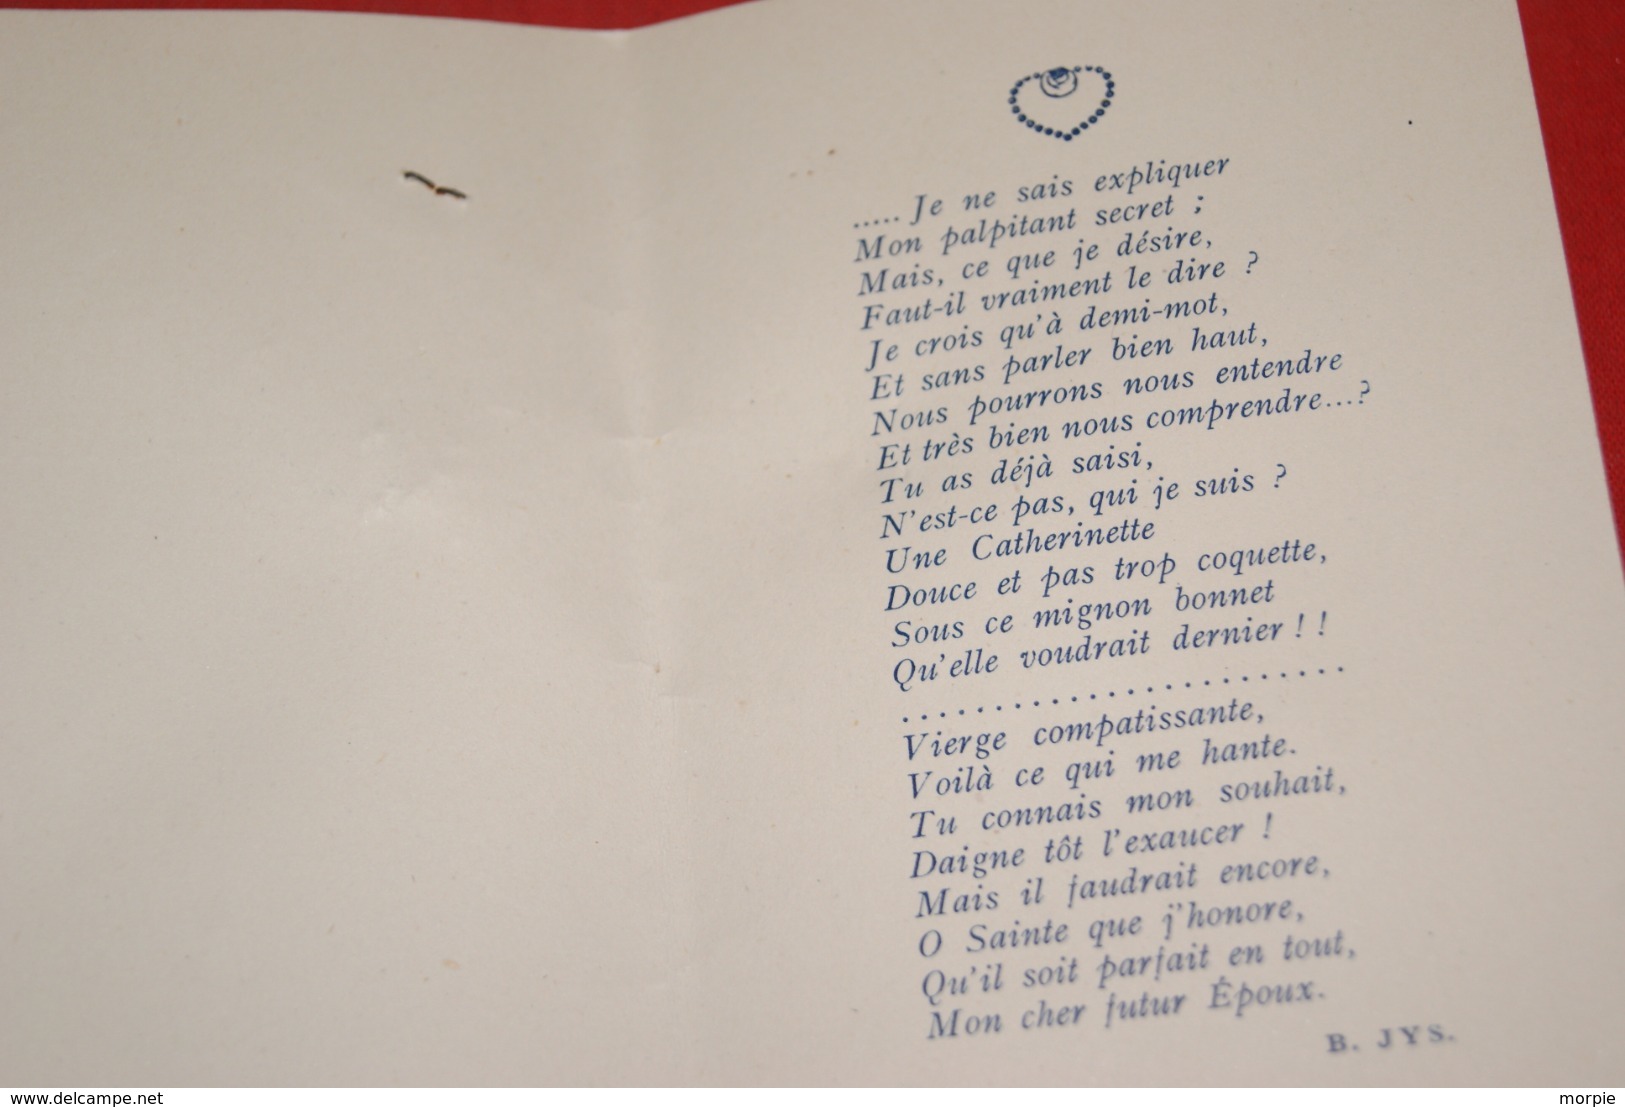 ..... Je ne sais expliquer
Mon palpitant secret ;
Mais, ce que je désire,
Faut-il vraiment le dire ?
Je crois qu'à demi-mot,
Et sans parler bien haut,
Nous pourrons nous entendre
Et très bien nous comprendre...?
Tu as déjà saisi,
N'est-ce pas, qui je suis ?
Une Catherinette
Douce et pas trop coquette,
Sous ce mignon bonnet
Qu'elle voudrait dernier ! !
. . . . . . . . . . . . . . . . . . . . . . . .
Vierge compatissante,
Voilà ce qui me hante.
Tu connais mon souhait,
Daigne tôt l'exaucer !
Mais il faudrait encore,
O Sainte que j'honore,
Qu'il soit parfait en tout,
Mon cher futur Époux.
B. JYS.
www.delcampe.net
morpie